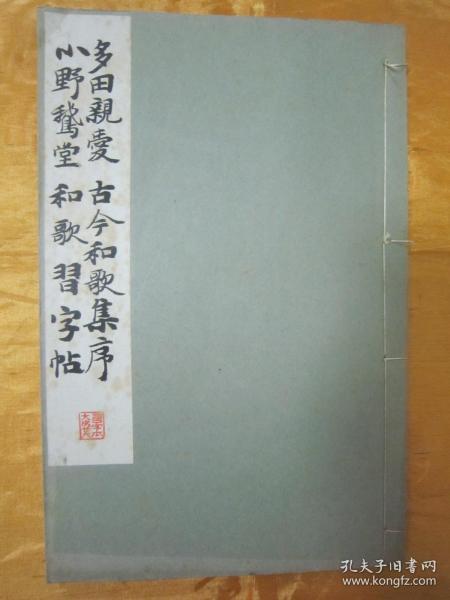 多田親愛 古今和歌集序
小野鵞堂 和歌 習字帖
孔夫子旧书网
www.kongfz.com